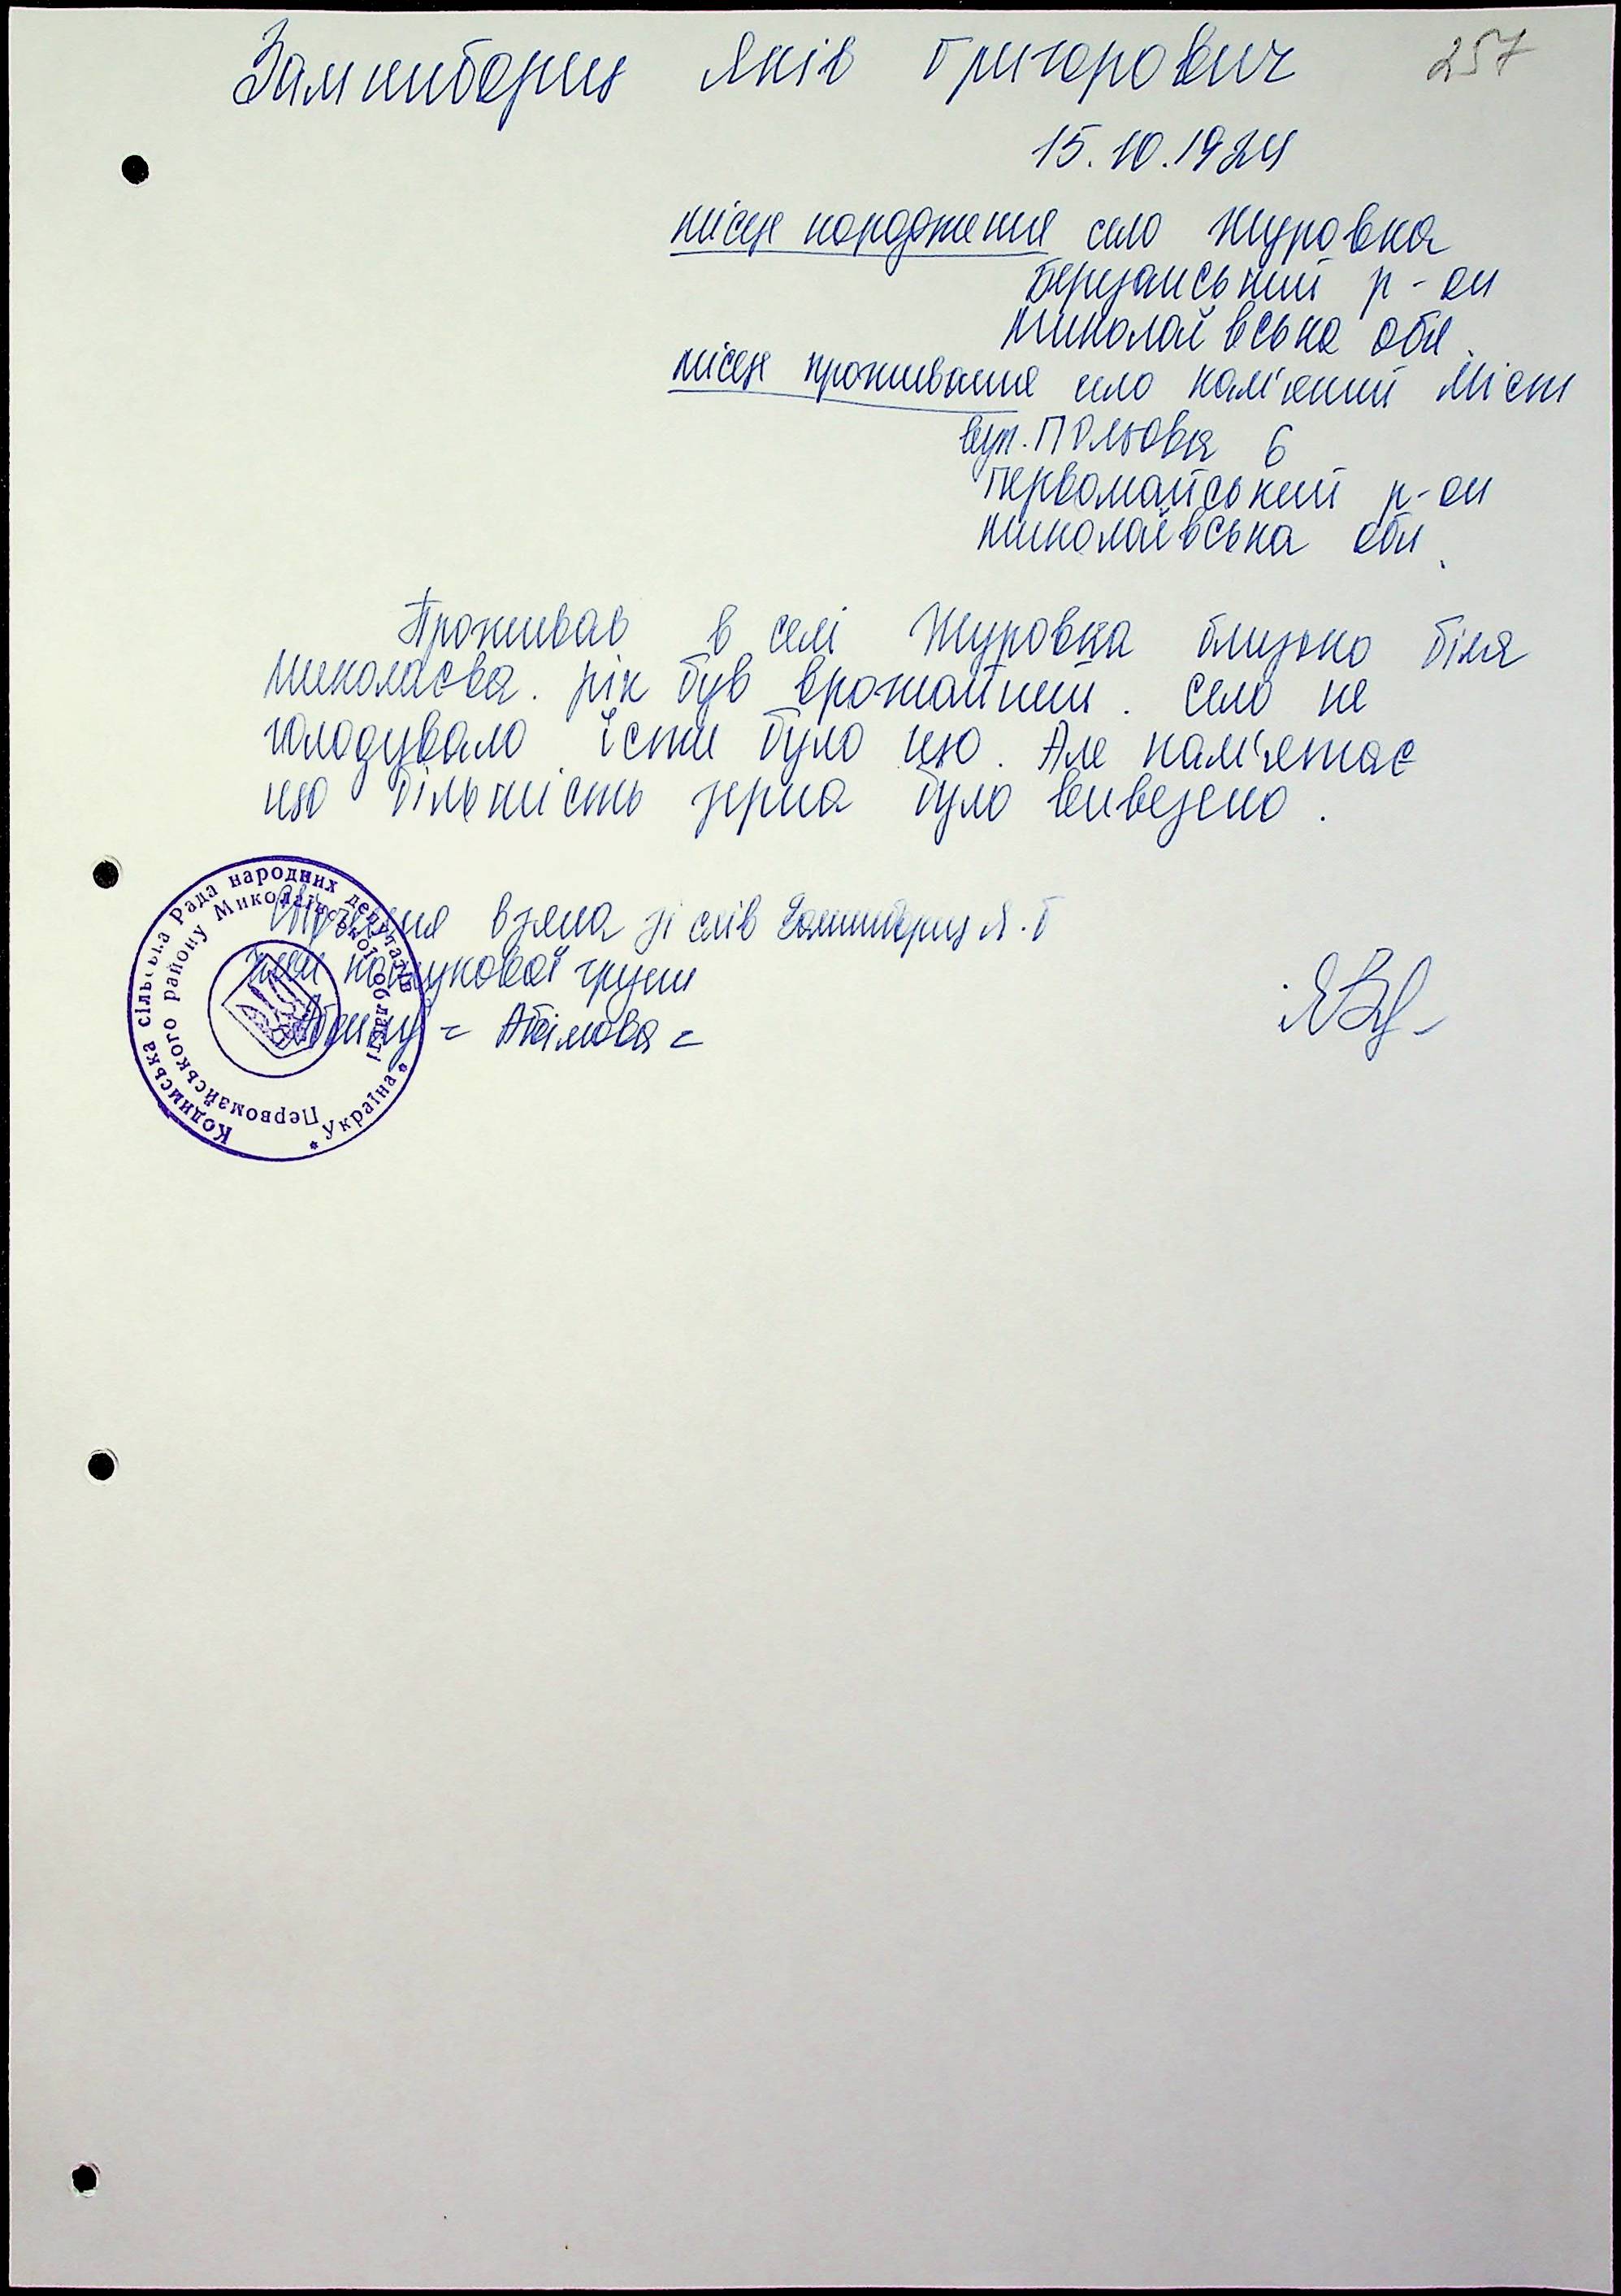 257
Замниборщ Яків Григорович
15.10.1924
місце народження село Журовка
Березанський р-он
Миколаївська обл.
місце проживання село Кам'яний Міст
вул. Польова 6
Первомайський р-он
Миколаївська обл.
Проживав в селі Журовка близько біля
Миколаєва. рік був врожайний. село не
голодувало їсти було що. Але пам'ятає
що більшість зерна було вивезено.
взяла зі слів Замниборщ Я.Г
член пошукової групи
= Абімова =
Кодимська сільська Рада народних депутатів
Первомайського району Миколаївської області
* Україна *